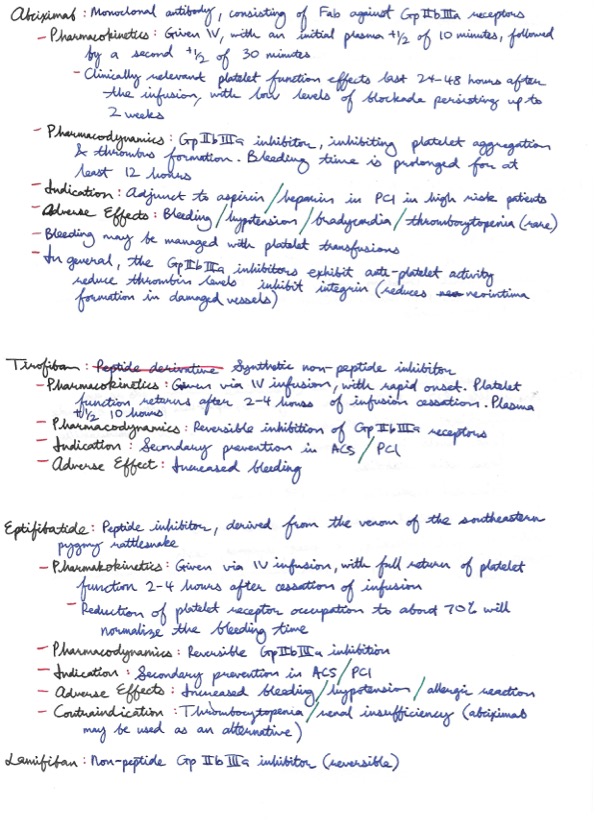 Abciximab: Monoclonal antibody, consisting of Fab against GpIIbIIIa receptors
- Pharmacokinetics: Given IV, with an initial plasma t1/2 of 10 minutes, followed
by a second t1/2 of 30 minutes
- Clinically relevant platelet function effects last 24-48 hours after
the infusion, with low levels of blockade persisting up to
2 weeks
- Pharmacodynamics: GpIIbIIIa inhibitor, inhibiting platelet aggregation
& thrombus formation. Bleeding time is prolonged for at
least 12 hours
- Indication: Adjunct to aspirin/heparin in PCI in high risk patients
- Adverse Effects: Bleeding/hypotension/bradycardia/thrombocytopenia (rare)
- Bleeding may be managed with platelet transfusions
- In general, the GpIIbIIIa inhibitors exhibit anti-platelet activity
reduce thrombin levels inhibit integrin (reduces neointima
formation in damaged vessels)
Tirofiban: Peptide derivative Synthetic non-peptide inhibitor
- Pharmacokinetics: Given via IV infusion, with rapid onset. Platelet
function returns after 2-4 hours of infusion cessation. Plasma
t1/2 10 hours
- Pharmacodynamics: Reversible inhibition of GpIIbIIIa receptors
- Indication: Secondary prevention in ACS/PCI
- Adverse Effect: Increased bleeding
Eptifibatide: Peptide inhibitor, derived from the venom of the southeastern
pygmy rattlesnake
- Pharmakokinetics: Given via IV infusion, with full return of platelet
function 2-4 hours after cessation of infusion
- Reduction of platelet receptor occupation to about 70% will
normalize the bleeding time
- Pharmacodynamics: Reversible GpIIbIIIa inhibition
- Indication: Secondary prevention in ACS/PCI
- Adverse Effects: Increased bleeding/hypotension/allergic reaction
- Contraindication: Thrombocytopenia/renal insufficiency (abciximab
may be used as an alternative)
Lamifiban: Non-peptide GpIIbIIIa inhibitor (reversible)